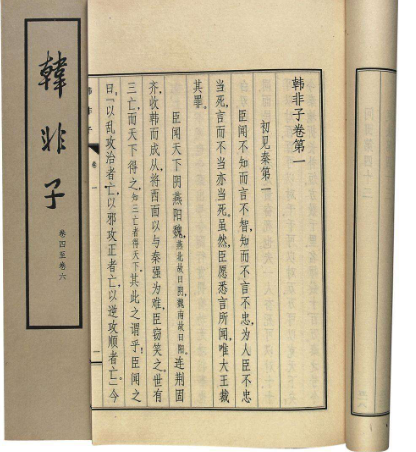 韓非子
卷四至卷六
韩非子卷第一
初见秦第一
臣闻不知而言不智，知而不言不忠，为人臣不忠
当死，言而不当亦当死，虽然，臣愿悉言所闻，唯大王裁
其罪。
臣闻天下阴燕阳魏，燕北故曰阴，魏南故曰阳。连荆固
齐，收韩而成从，将西面以与秦强为难，臣窃笑之，世有
三亡，而天下得之，知三亡者得天下。其此之谓乎！臣闻之
曰：「以乱攻治者亡，以邪攻正者亡，以逆攻顺者亡。」今
韩非子 卷一 二